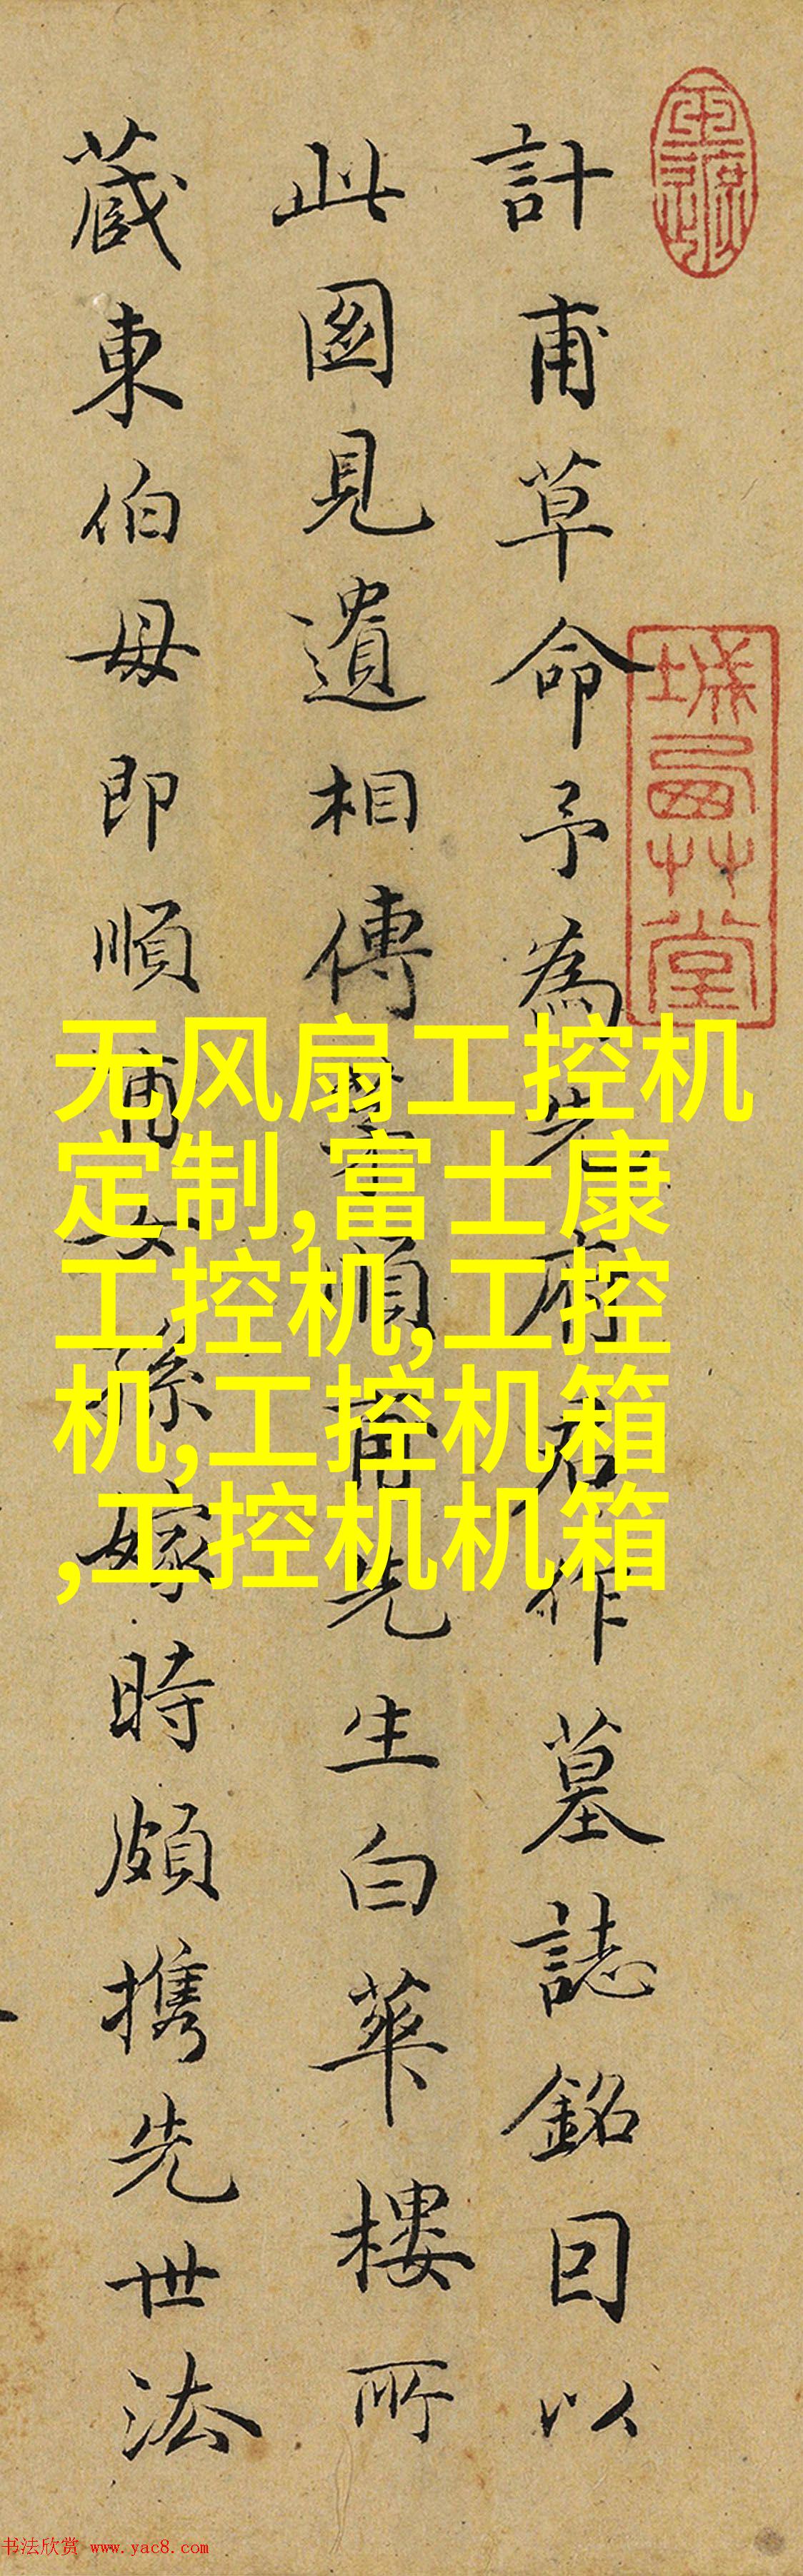 計甫草命予為先府君作墓誌銘囙以
此圖見遺相傳順甫先生白華樓所
蔵東伯母即順甫女孫嫁時頗携先世法
无风扇工控机
定制,富士康
工控机,工控
机,工控机箱
,工控机机箱
书法欣赏 www.yac8.com